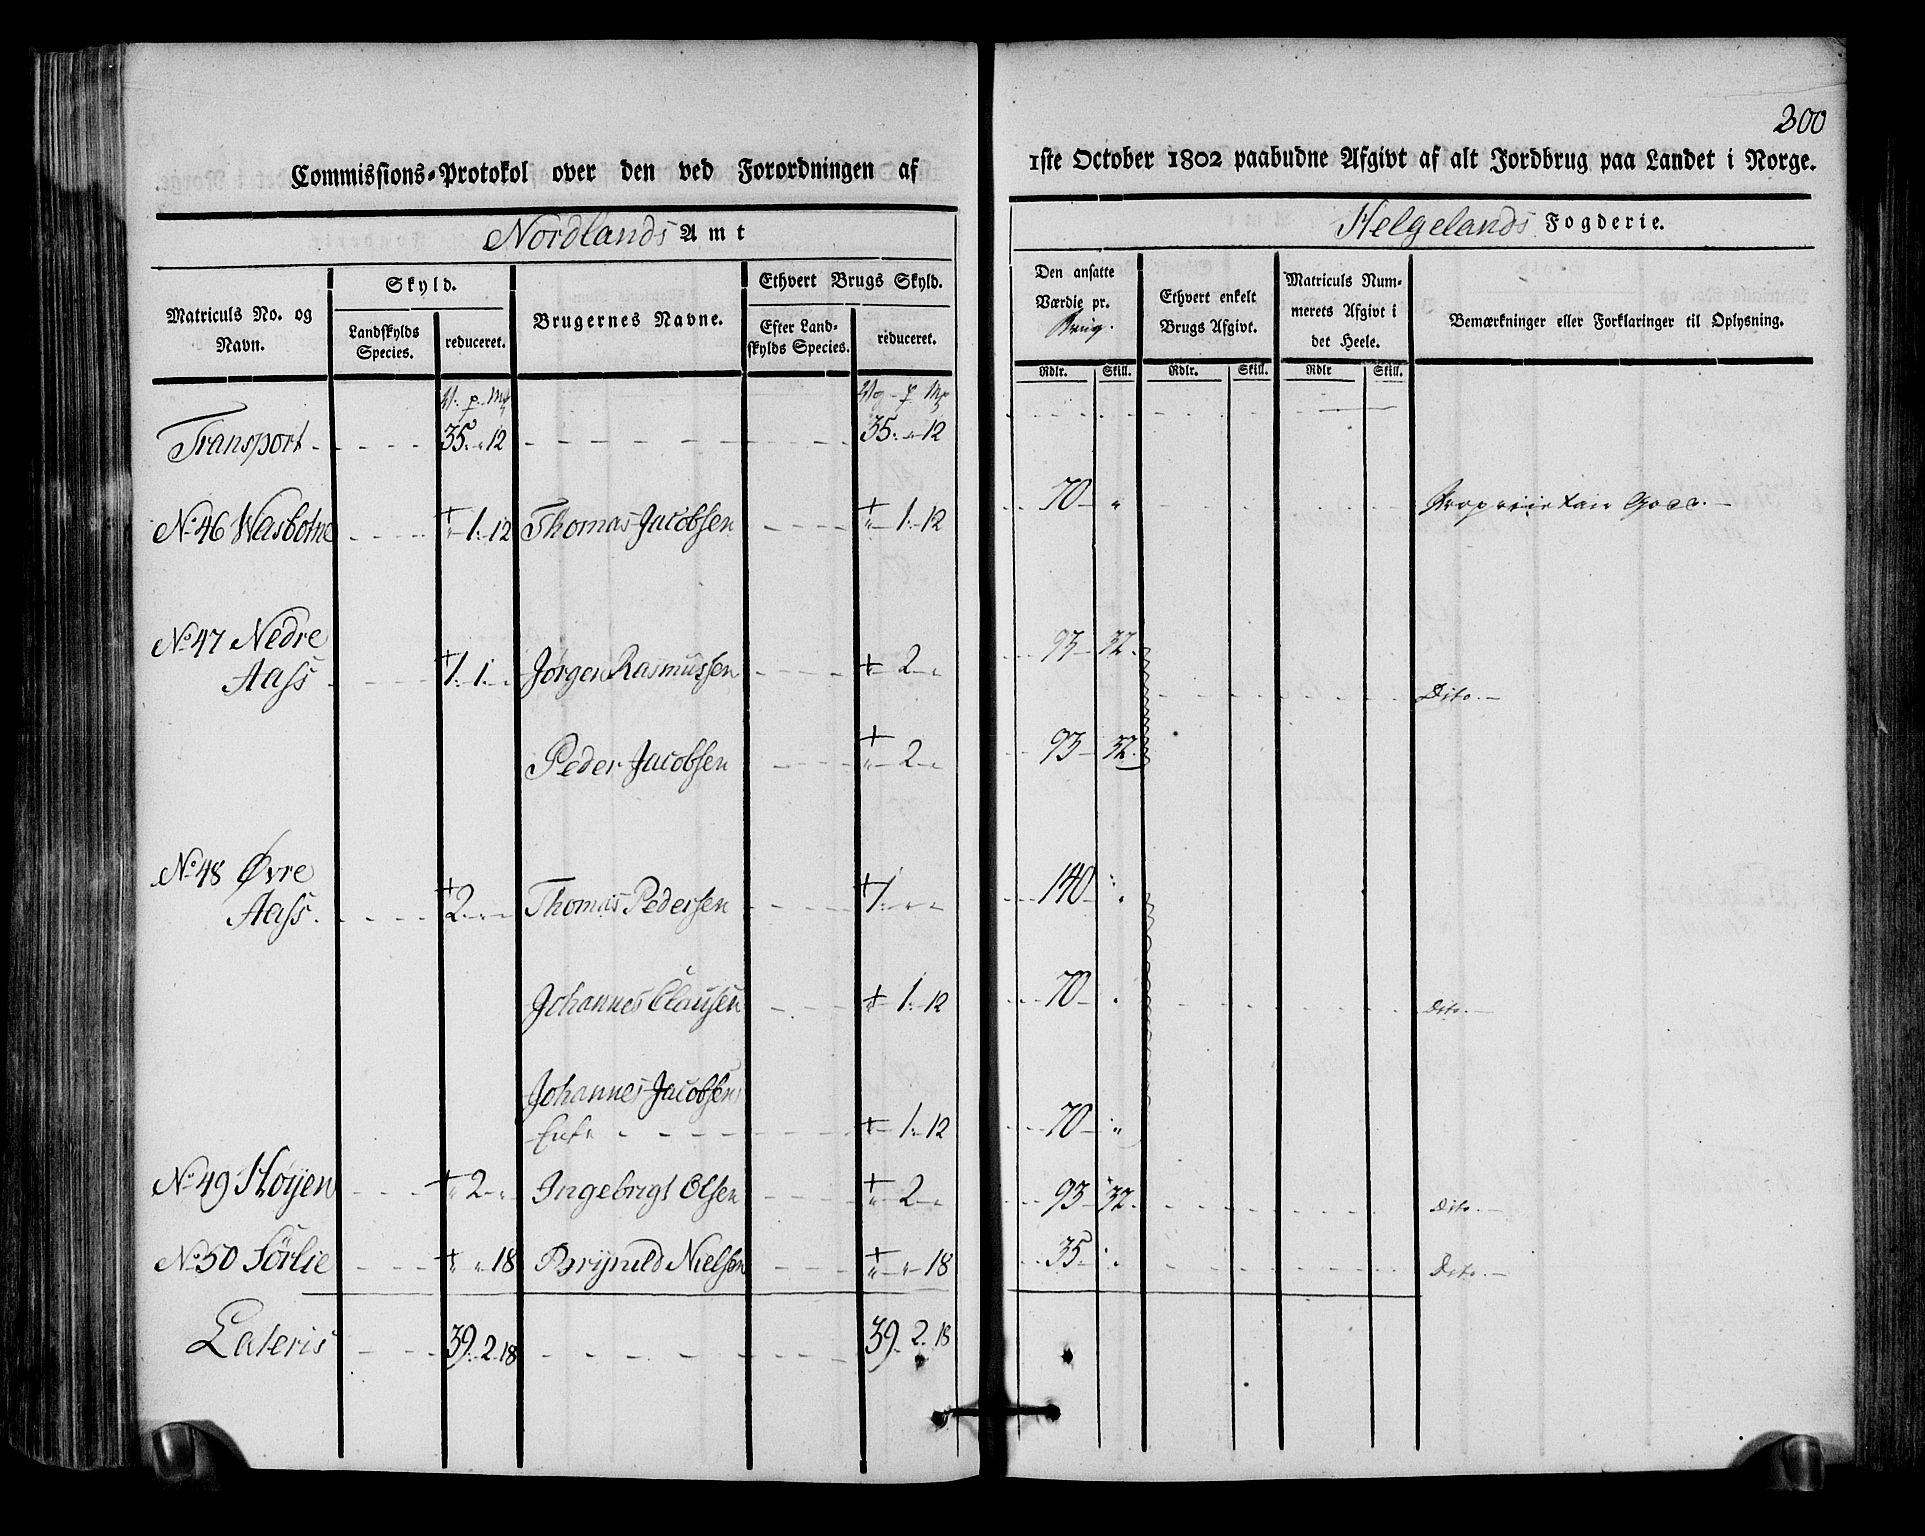 200
Commissions-Protokol over den ved Forordningen af
1ste October 1802 paabudne Afgivt af alt Jordbrug paa Landet i Norge.
Nordlands Amt
Helgelands Fogderie.
Matriculs No. og Navn.
Skyld.
Landskylds Species.
reduceret.
Brugernes Navne.
Ethvert Brugs Skyld.
Efter Landskylds Species.
reduceret.
Den ansatte Værdie pr. Brug.
Ethvert enkelt Brugs Afgivt.
Matriculs Nummerets Afgivt i det Heele.
Bemærkninger eller Forklaringer til Oplysning.
Rdlr. Skill. Rdlr. Skill. Rdlr Skill.
Transport 35. „ 12 35. „ 12
No 46 Weisbotne „ 1. 12 Thomas Jacobsen „ 1. 12 70 „ Proprietair Gods.
No 47 Nedre
Aass 1. 1. „ Jørgen Rasmussen „ 2 „ 93 32. Dito.
Peder Jacobsen „ 2 „ 93 32.
No 48 Øvre
Aass. 2 „ „ Thomas Pedersen 1. „ „ 140 „
Johannes Clausen „ 1. 12 70 „ Dito.
Johannes Jacobsens
Enke „ 1. 12 70 „
No 49 Høyen „ 2 „ Ingebrigt Olsen „ 2 „ 93 32. Dito.
No 50 Sørlie „ „ 18 Brynild Nielsen „ „ 18 35 „ Dito.
Lateris 39. 2. 18 39. 2. 18